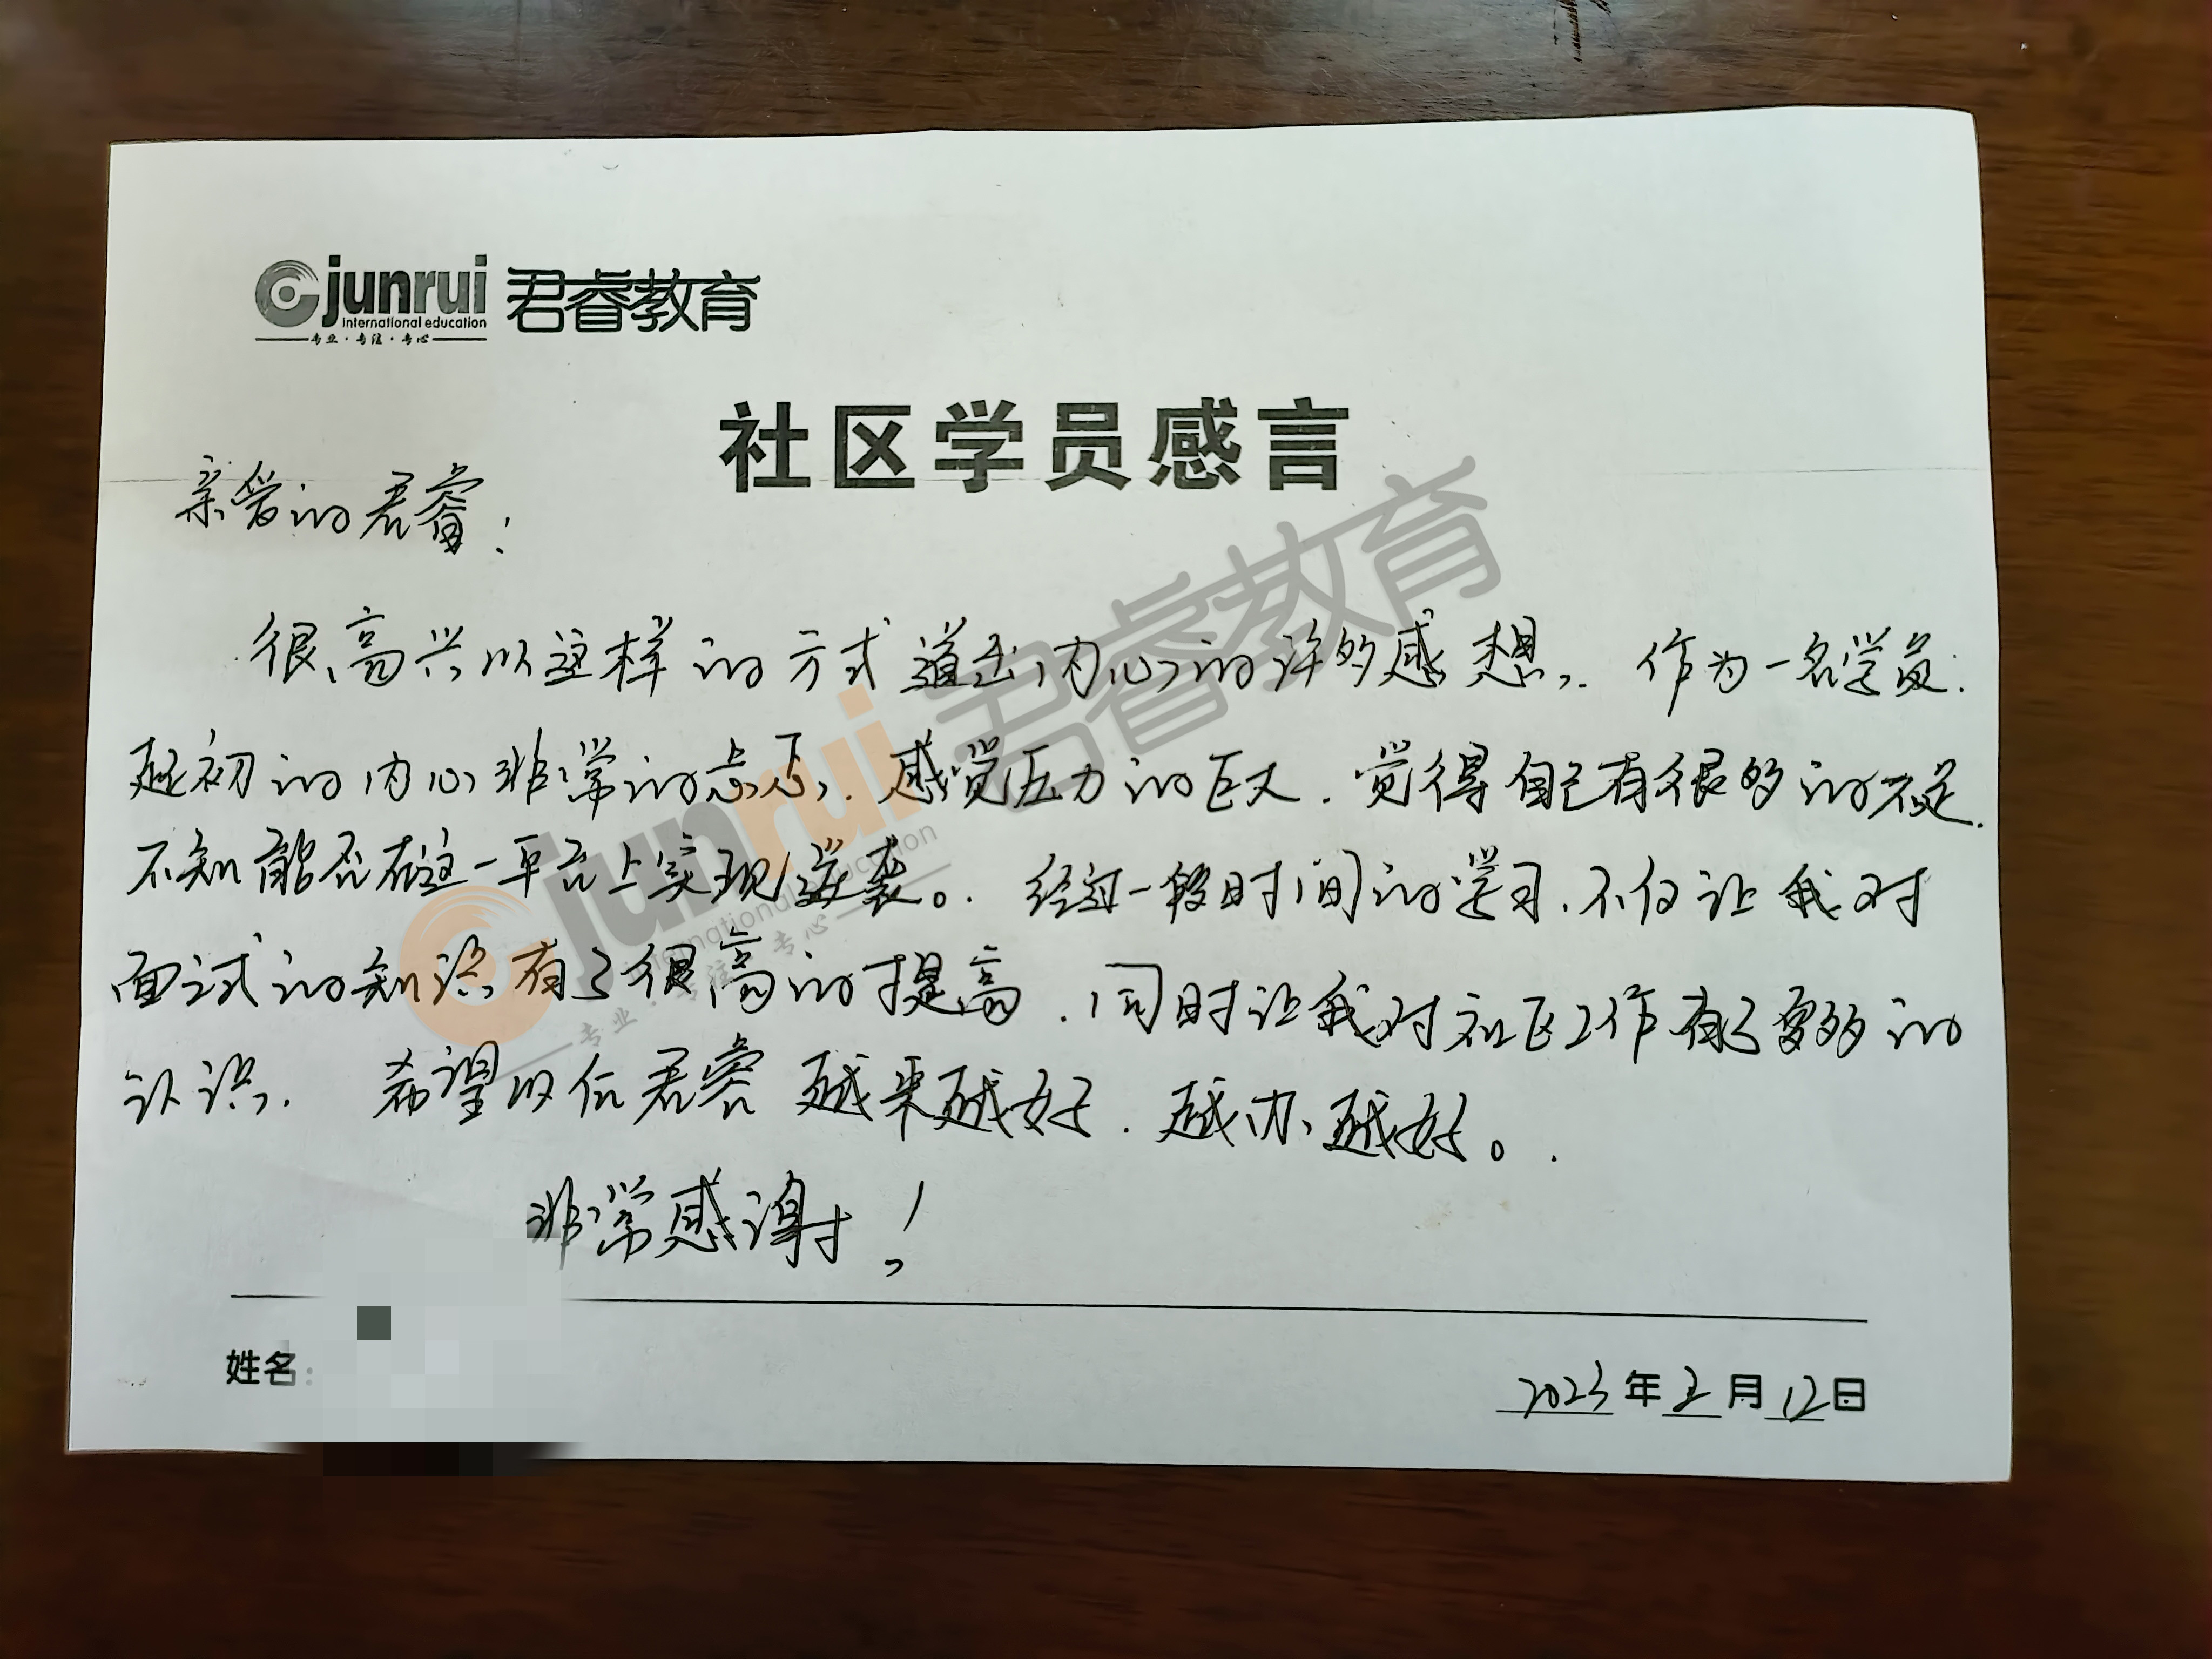 junrui 君睿教育
international education
专业·专注·专心
社区学员感言
亲爱的君睿:
很高兴以这样的方式道出内心的许多感想. 作为一名学员.
起初的内心非常的忐忑. 感觉压力的巨大. 觉得自己有很多的不足.
不知能否在这一平台上实现逆袭。 经过一段时间的学习. 不仅让我对
面试的知识有了很高的提高. 同时让我对社区工作有了更多的
认识. 希望以后君睿越来越好. 越办越好。
非常感谢!
姓名:
2023年2月12日
junrui 君睿教育
international education
专业·专注·专心